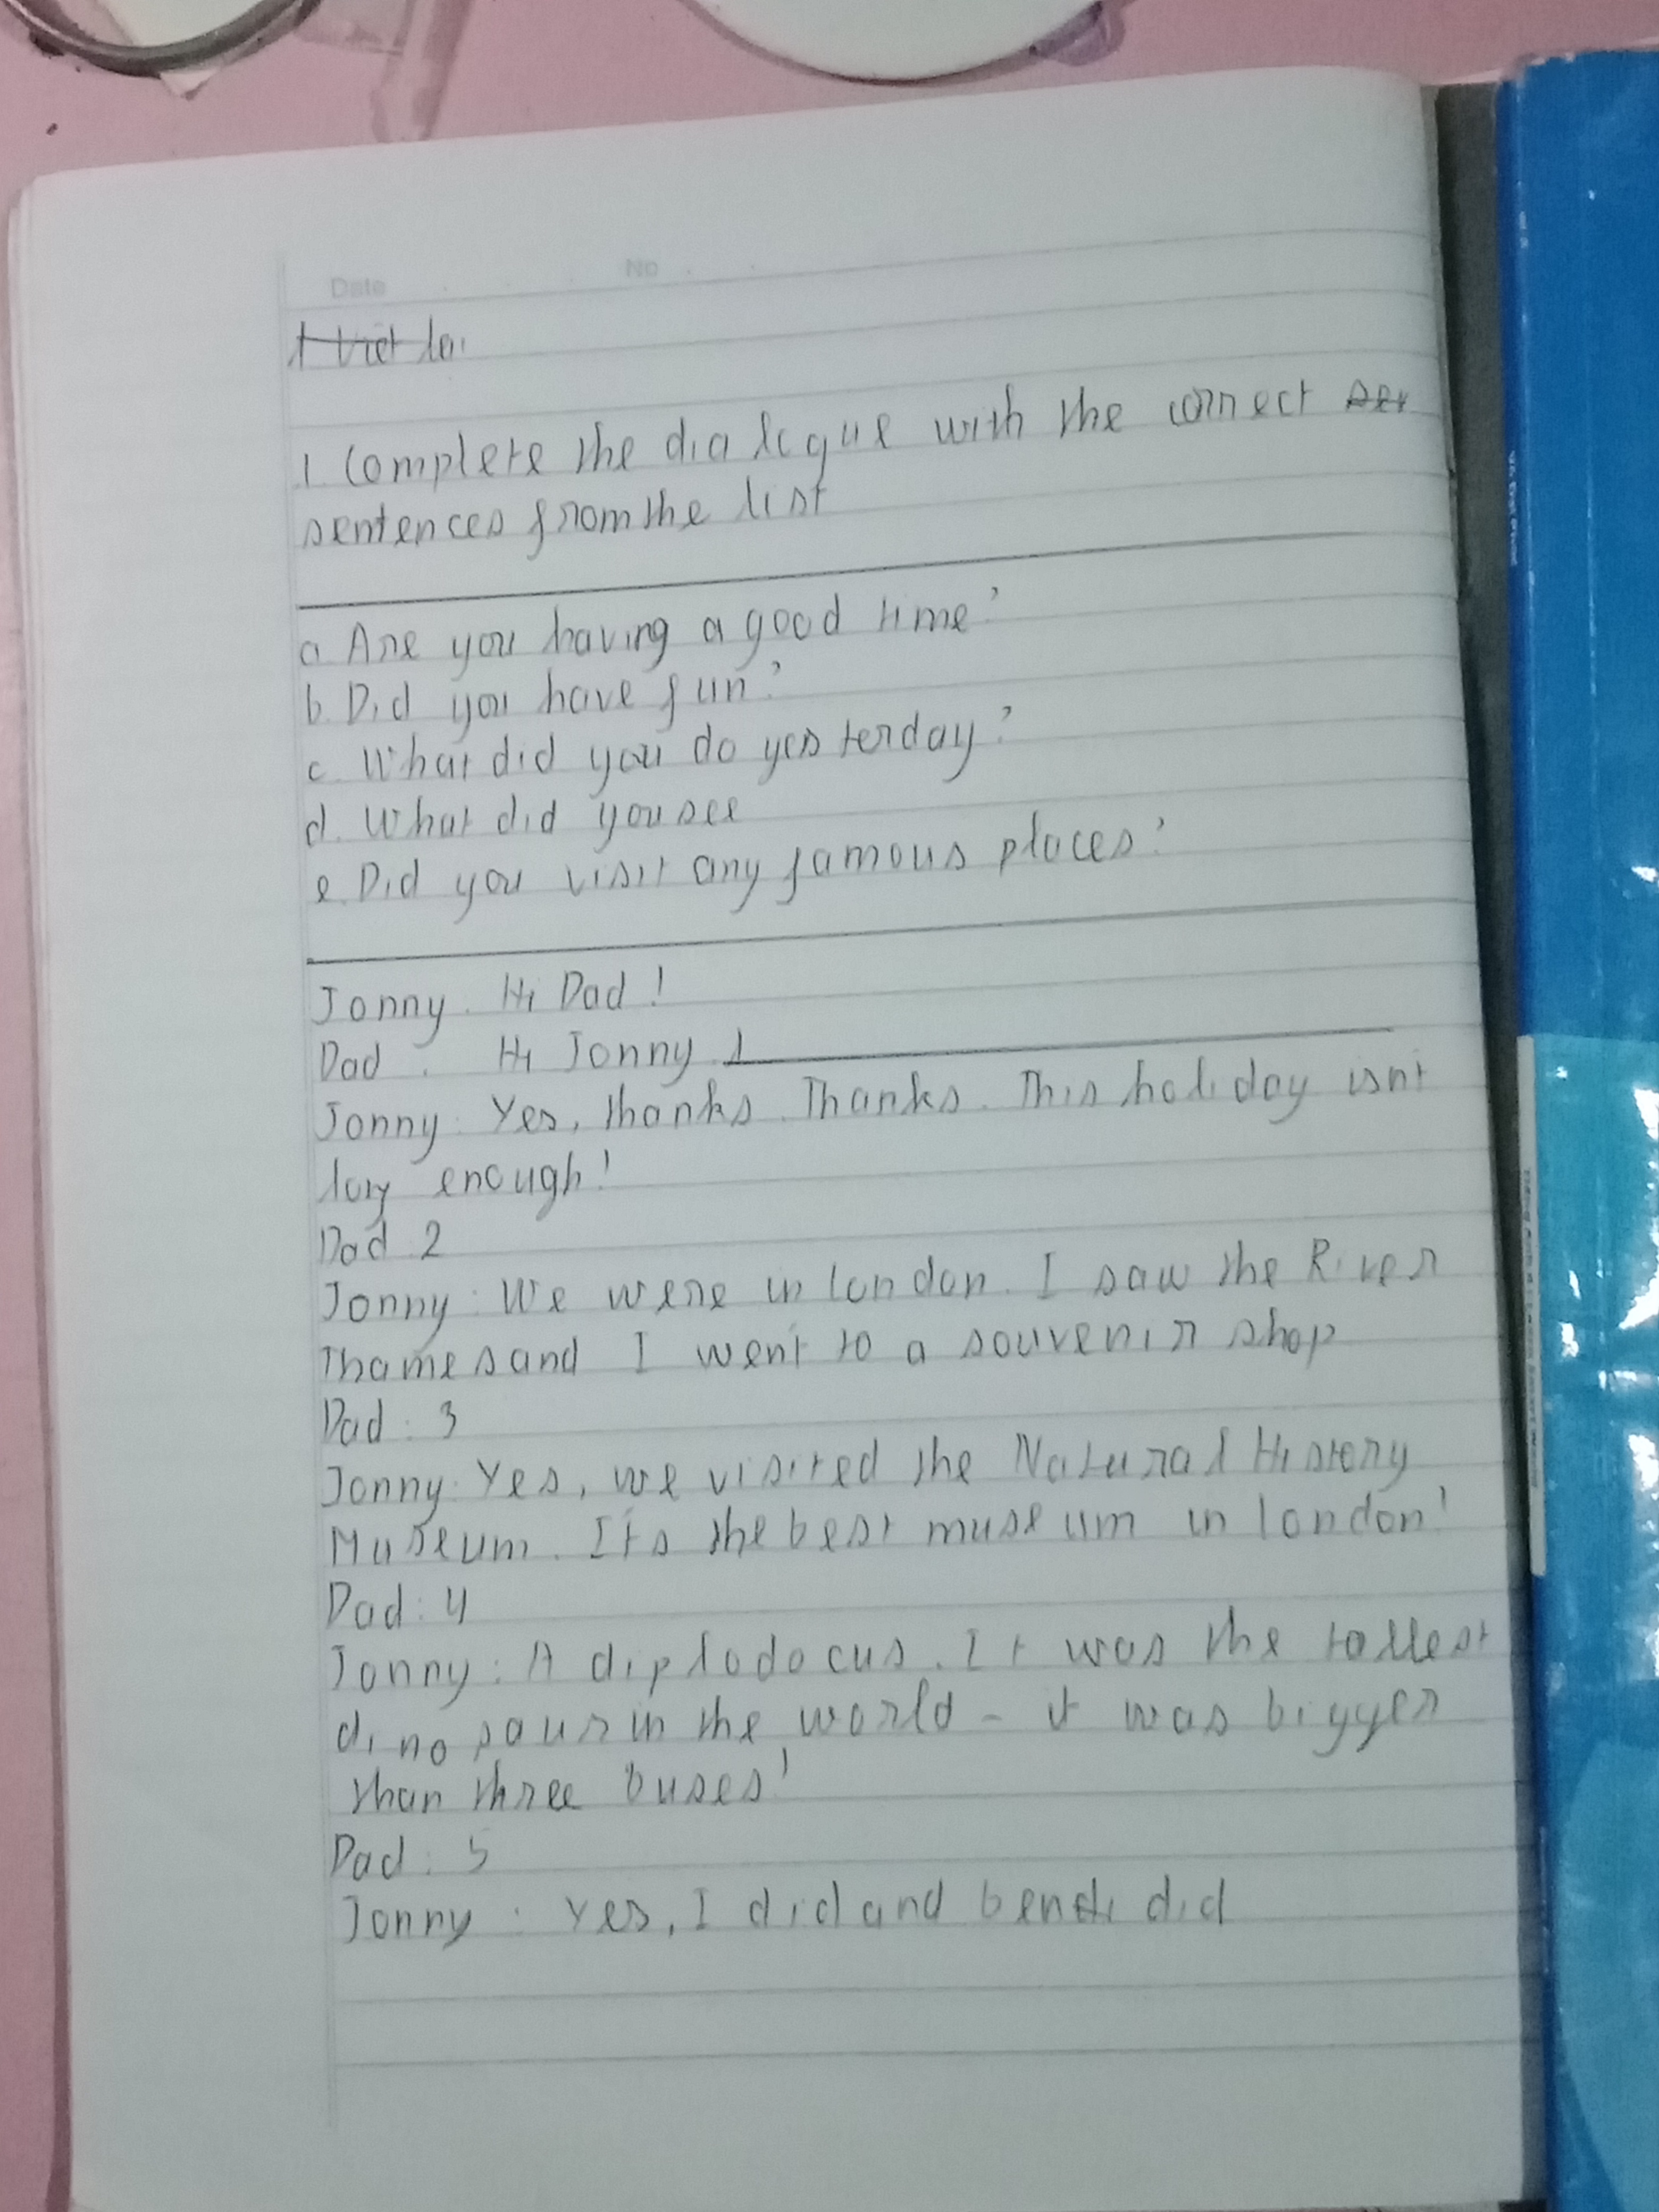 Date No
1. Complete the dialogue with the correct
sentences from the list
a. Are you having a good time?
b. Did you have fun?
c. What did you do yesterday?
d. What did you see
e. Did you visit any famous places?
Jonny: Hi Dad!
Dad: Hi Jonny 1
Jonny: Yes, thanks. Thanks. This holiday isnt
long enough!
Dad 2
Jonny: We were in london. I saw the River
Thames and I went to a souvenir shop
Dad: 3
Jonny: Yes, we visited the Natural History
Museum. Its the best museum in london!
Dad: 4
Jonny: A diplodocus. It was the tallest
dinosaur in the world - it was bigger
than three buses!
Dad: 5
Jonny: Yes, I did and did